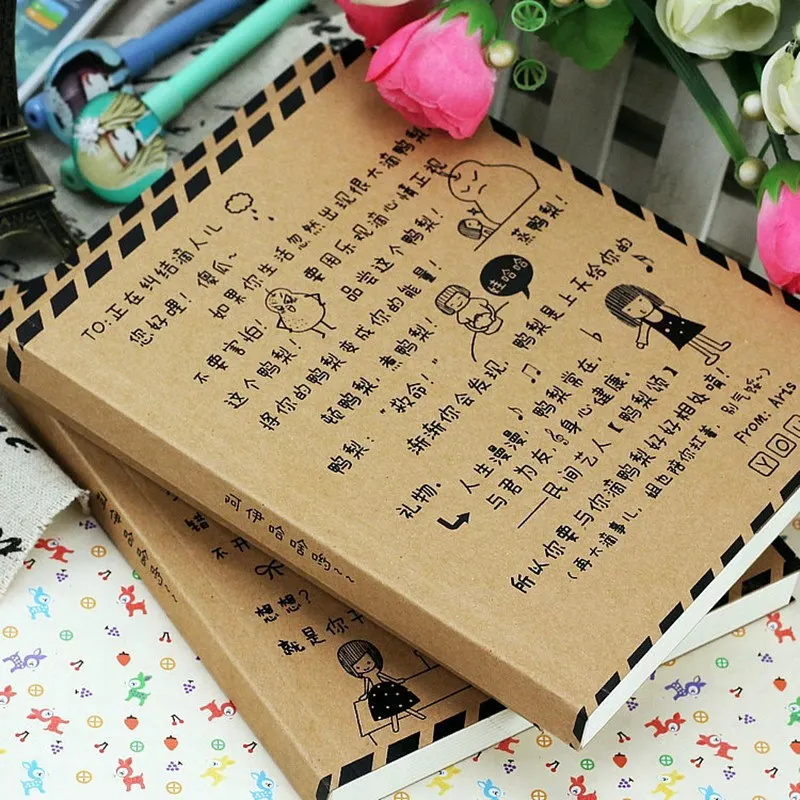 TO:正在纠结滴人儿
您好哩！傻瓜~
如果你生活忽然出现很大滴鸭梨，
不要害怕！要用乐观滴心情正视
这个鸭梨！品尝这个鸭梨！
将你的鸭梨变成你的能量！
顿鸭梨，煮鸭梨！蒸鸭梨！
鸭梨：“救命！”
哇哈哈
渐渐你会发现，鸭梨是上天给你的
礼物。
人生漫漫，鸭梨常在，
与君为友，身心健康。
——民间艺人【鸭梨颂】
所以你要与你滴鸭梨好好相处啃！
（再大滴事儿，姐也陪你扛着，别气馁~）
From: Aris
YO
错
不开
想想？
就是你